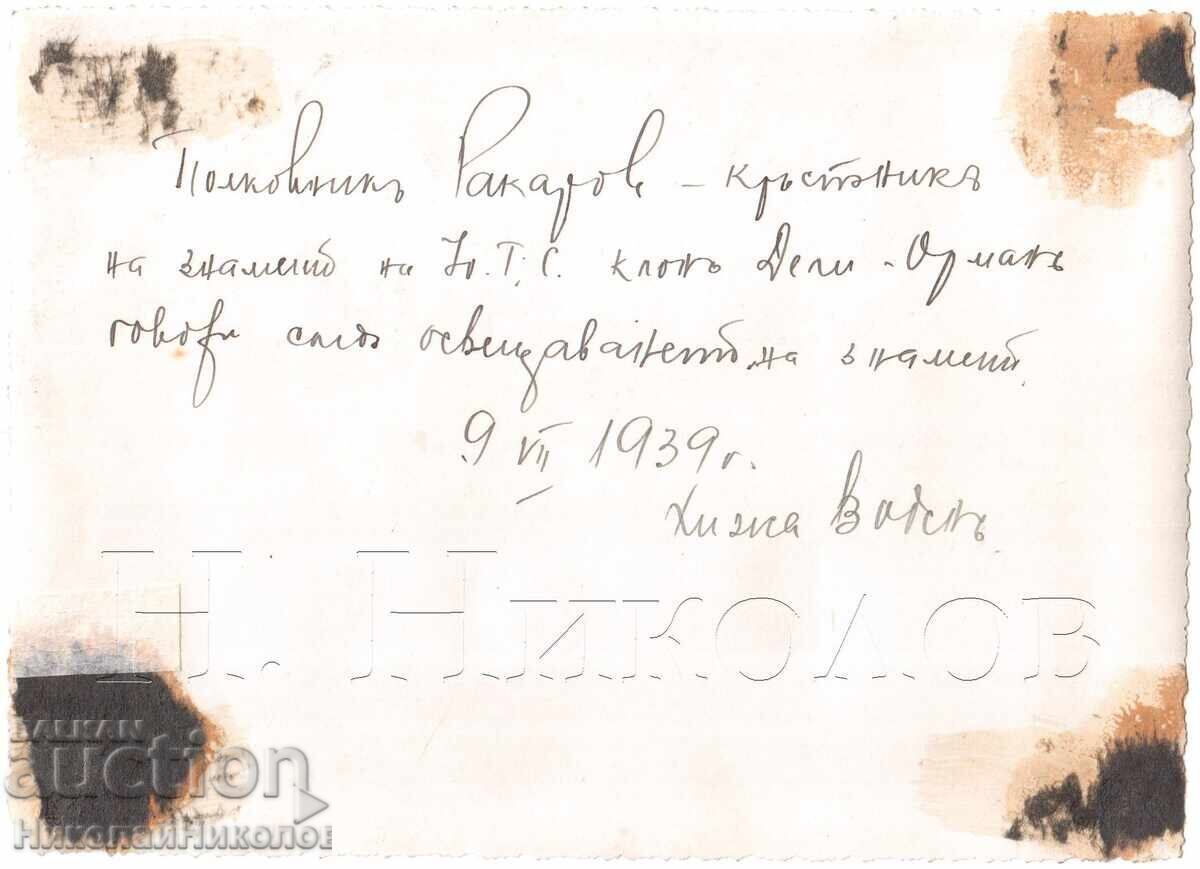 Полковникъ Ракаровъ – кръстникъ
на знамето на Ю.Т.С. клонъ Дели-Орманъ
говори следъ освещаването на знамето.
9 VII 1939 г.
Хижа Воденъ
Н. НИКОЛОВ
BALKAN
auction
НиколайНиколов